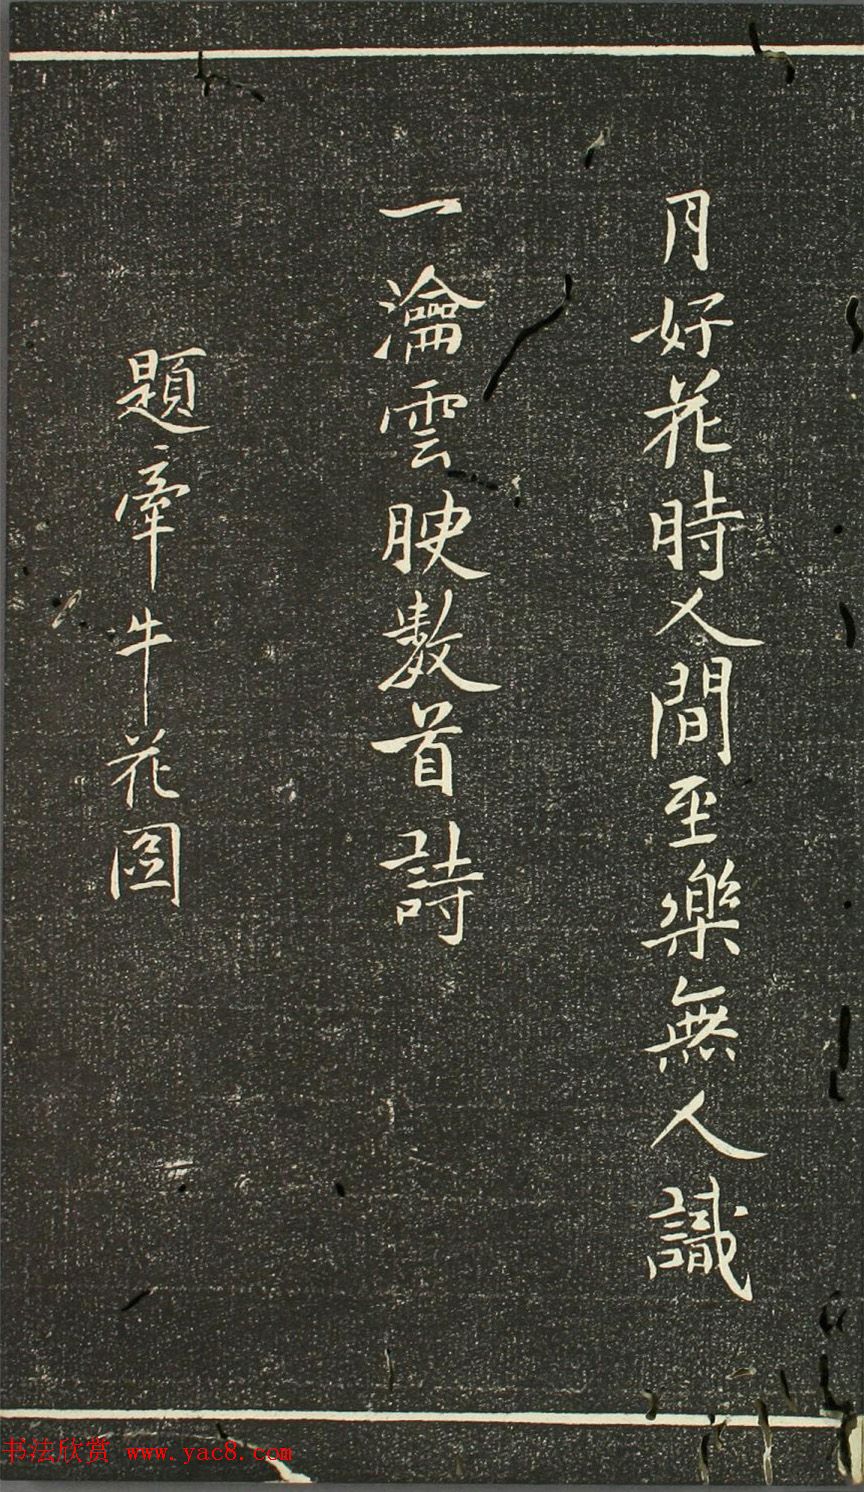 月好花時人間至樂無人識
一瀹雲腴數首詩
題牽牛花圖
书法欣赏 www.yac8.com